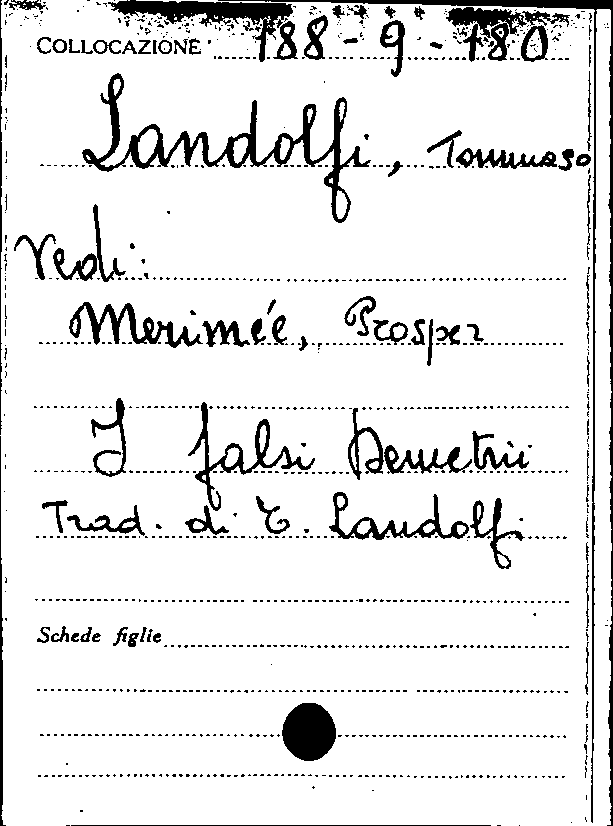 COLLOCAZIONE 188-9-180
Landolfi, Tommaso
Vedi:
Merimée, Prosper
I falsi Demetrii
Trad. di T. Landolfi
Schede figlie